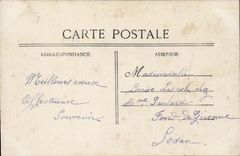 CARTE POSTALE
CORRESPONDANCE
ADRESSE
Meilleurs vœux
Affectueuse
Souvenir
Mademoiselle
Louise
Fond de Givonne
Sedan